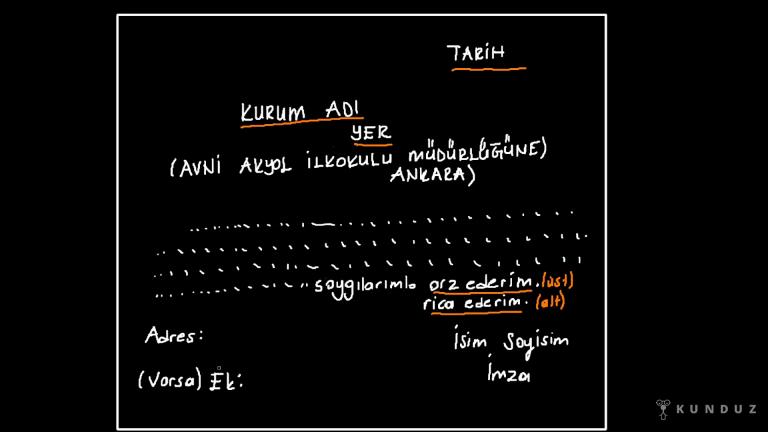 TARİH
KURUM ADI
YER
(AVNİ AKYOL İLKOKULU MÜDÜRLÜĞÜNE)
ANKARA)
saygılarımla arz ederim. (üst)
rica ederim. (alt)
Adres:
İsim Soyisim
(Varsa) Ek:
İmza
KUNDUZ